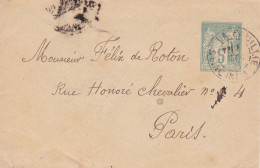 Monsieur Félix de Roton
Rue Honoré Chevalier nº 4
Paris.
5